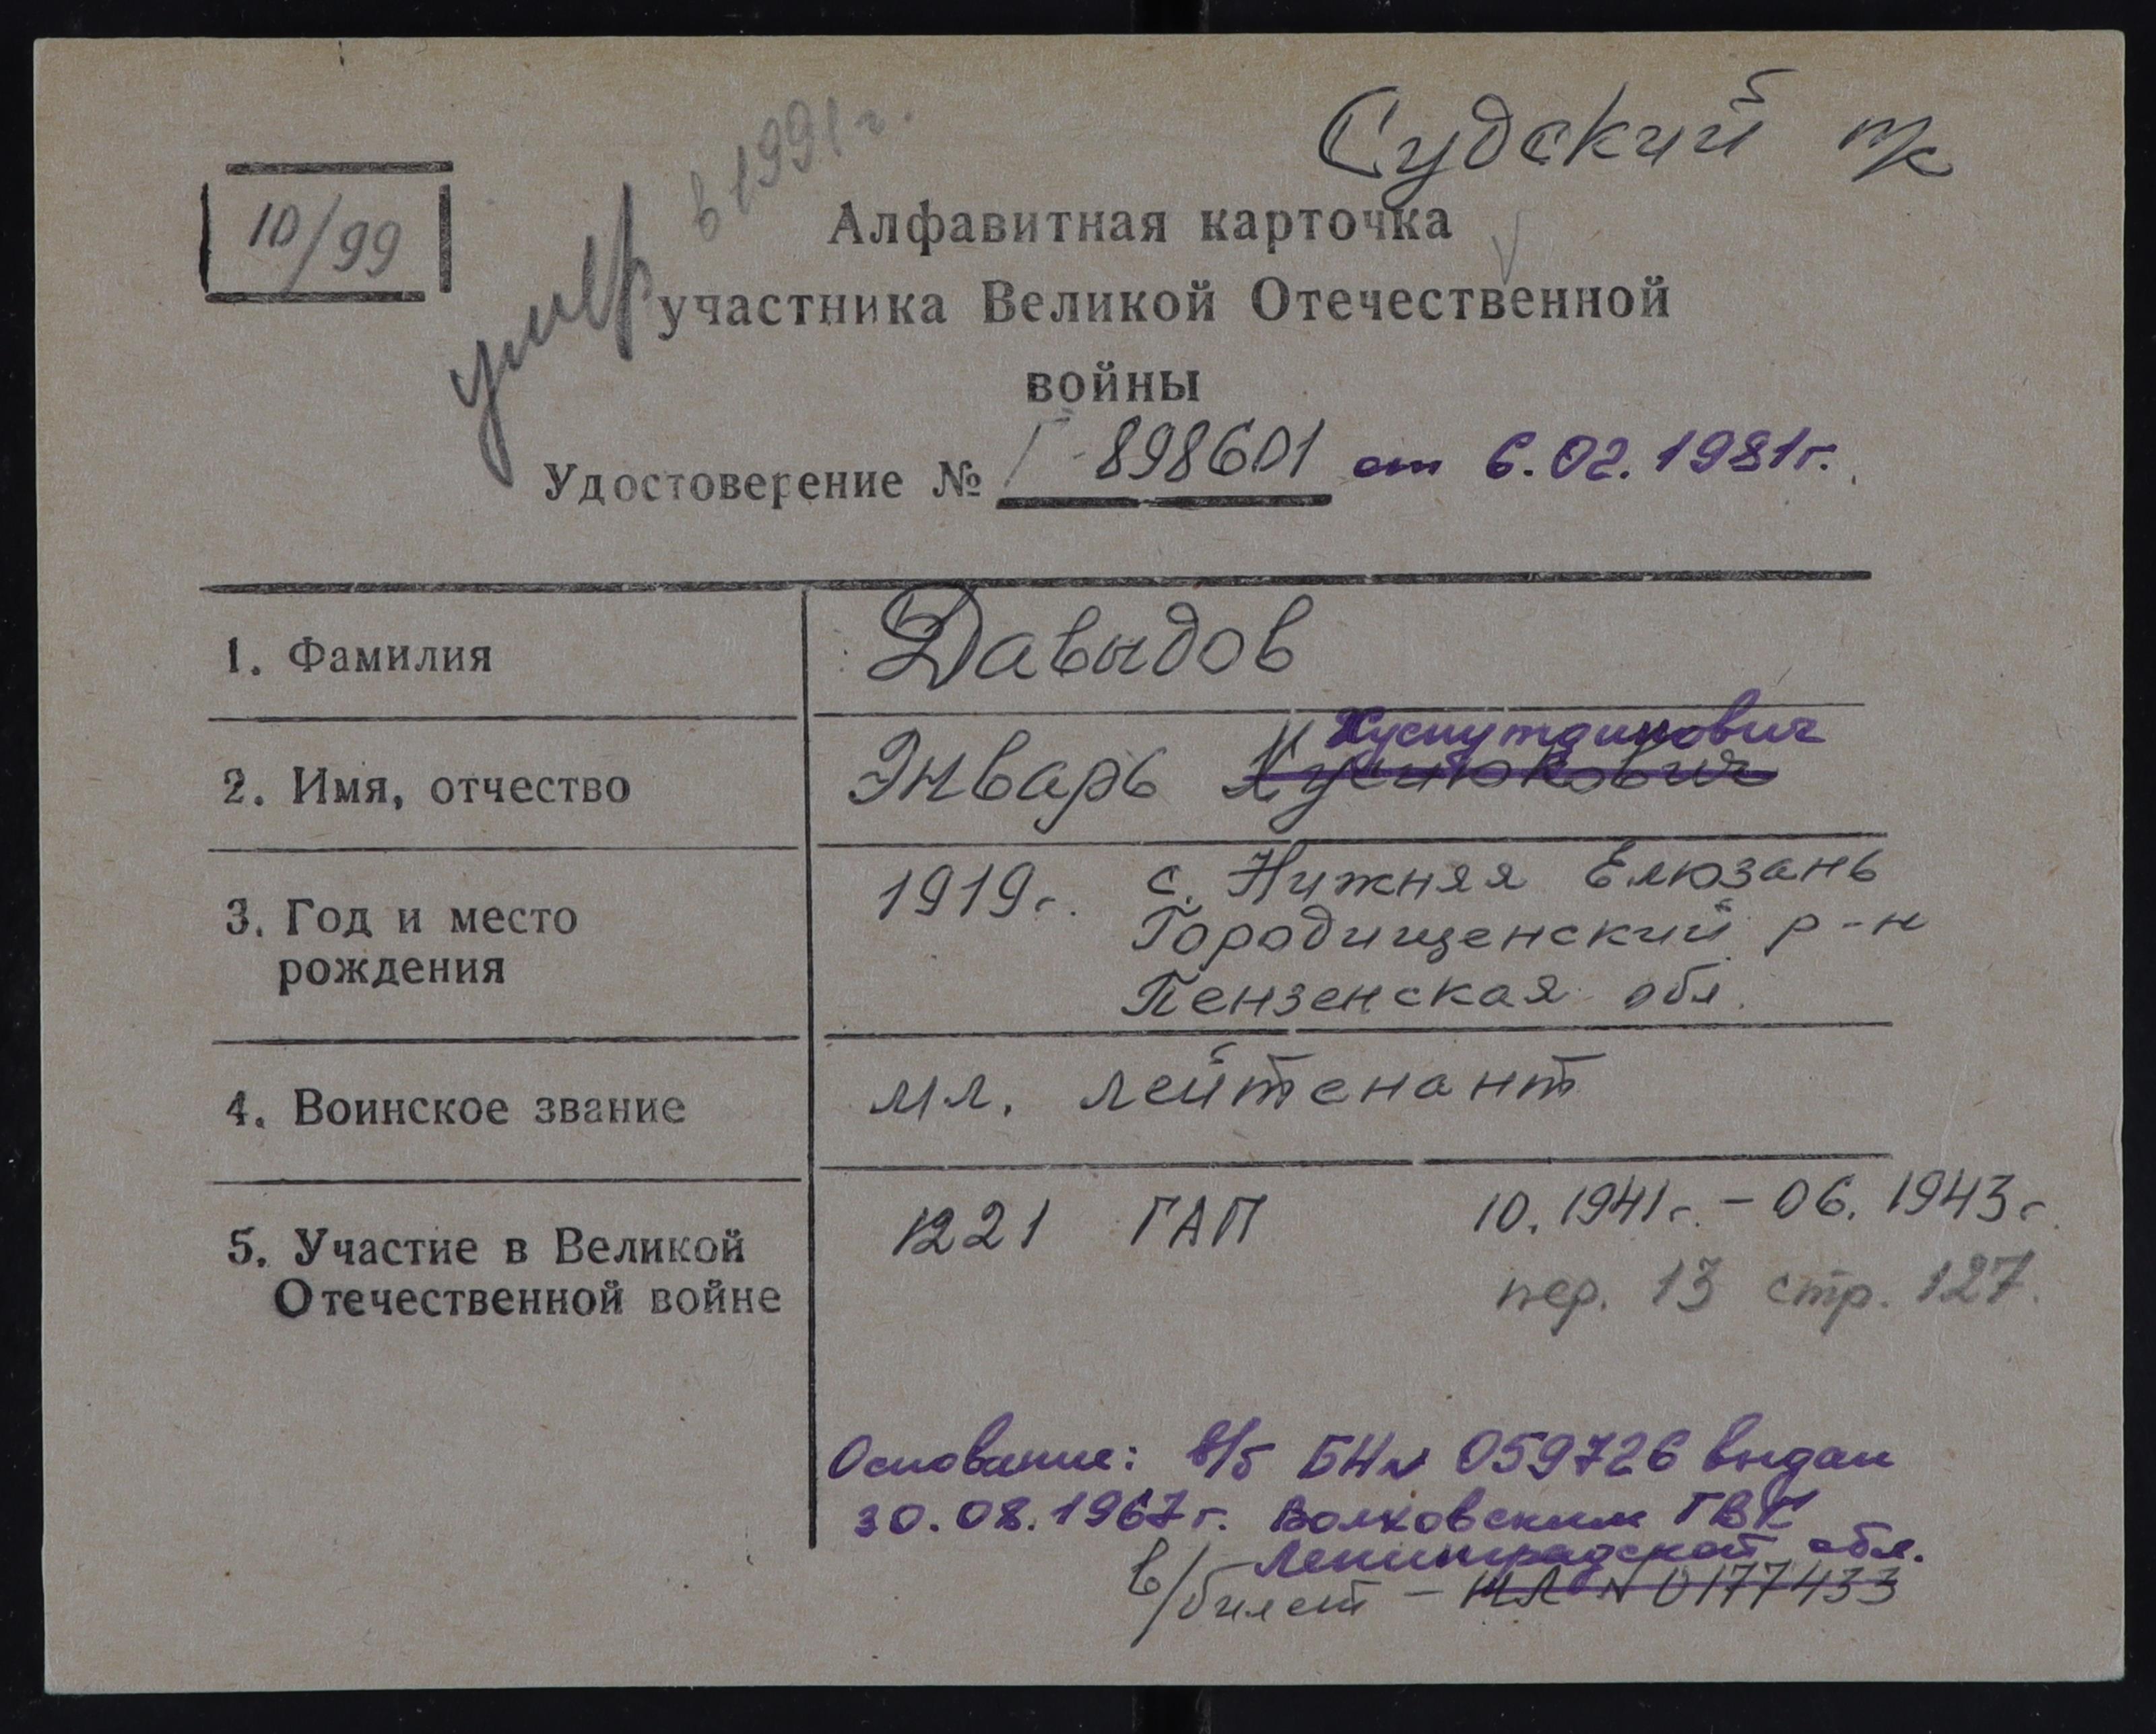 Судский т/к
10/99
умер в 1991 г.
Алфавитная карточка
участника Великой Отечественной
войны
Удостоверение № Г-898601 от 6.02.1981г.
1. Фамилия
Давыдов
2. Имя, отчество
Хуснутдинович
Январь Хуснюкович
3. Год и место
рождения
1919г. с. Нижняя Елюзань
Городищенский р-н
Пензенская обл.
4. Воинское звание
мл. лейтенант
5. Участие в Великой
Отечественной войне
1221 ГАП 10.1941г. - 06.1943г.
пер. 13 стр. 127.
Основание: в/б БН№ 059726 выдан
30.08.1967г. Волховским ГВК
Ленинградской обл.
в/билет - МЛ № 0177433